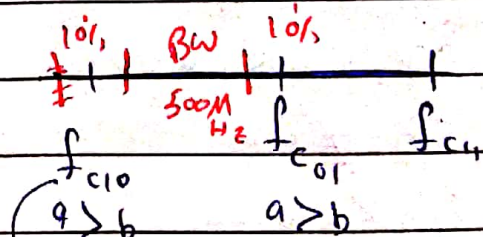 10% BW 10%
500M
Hz
fc10 fc01 fc4
a>b a>b